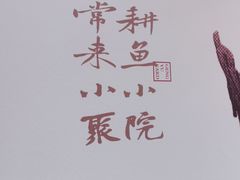 耕鱼小院
常来小聚